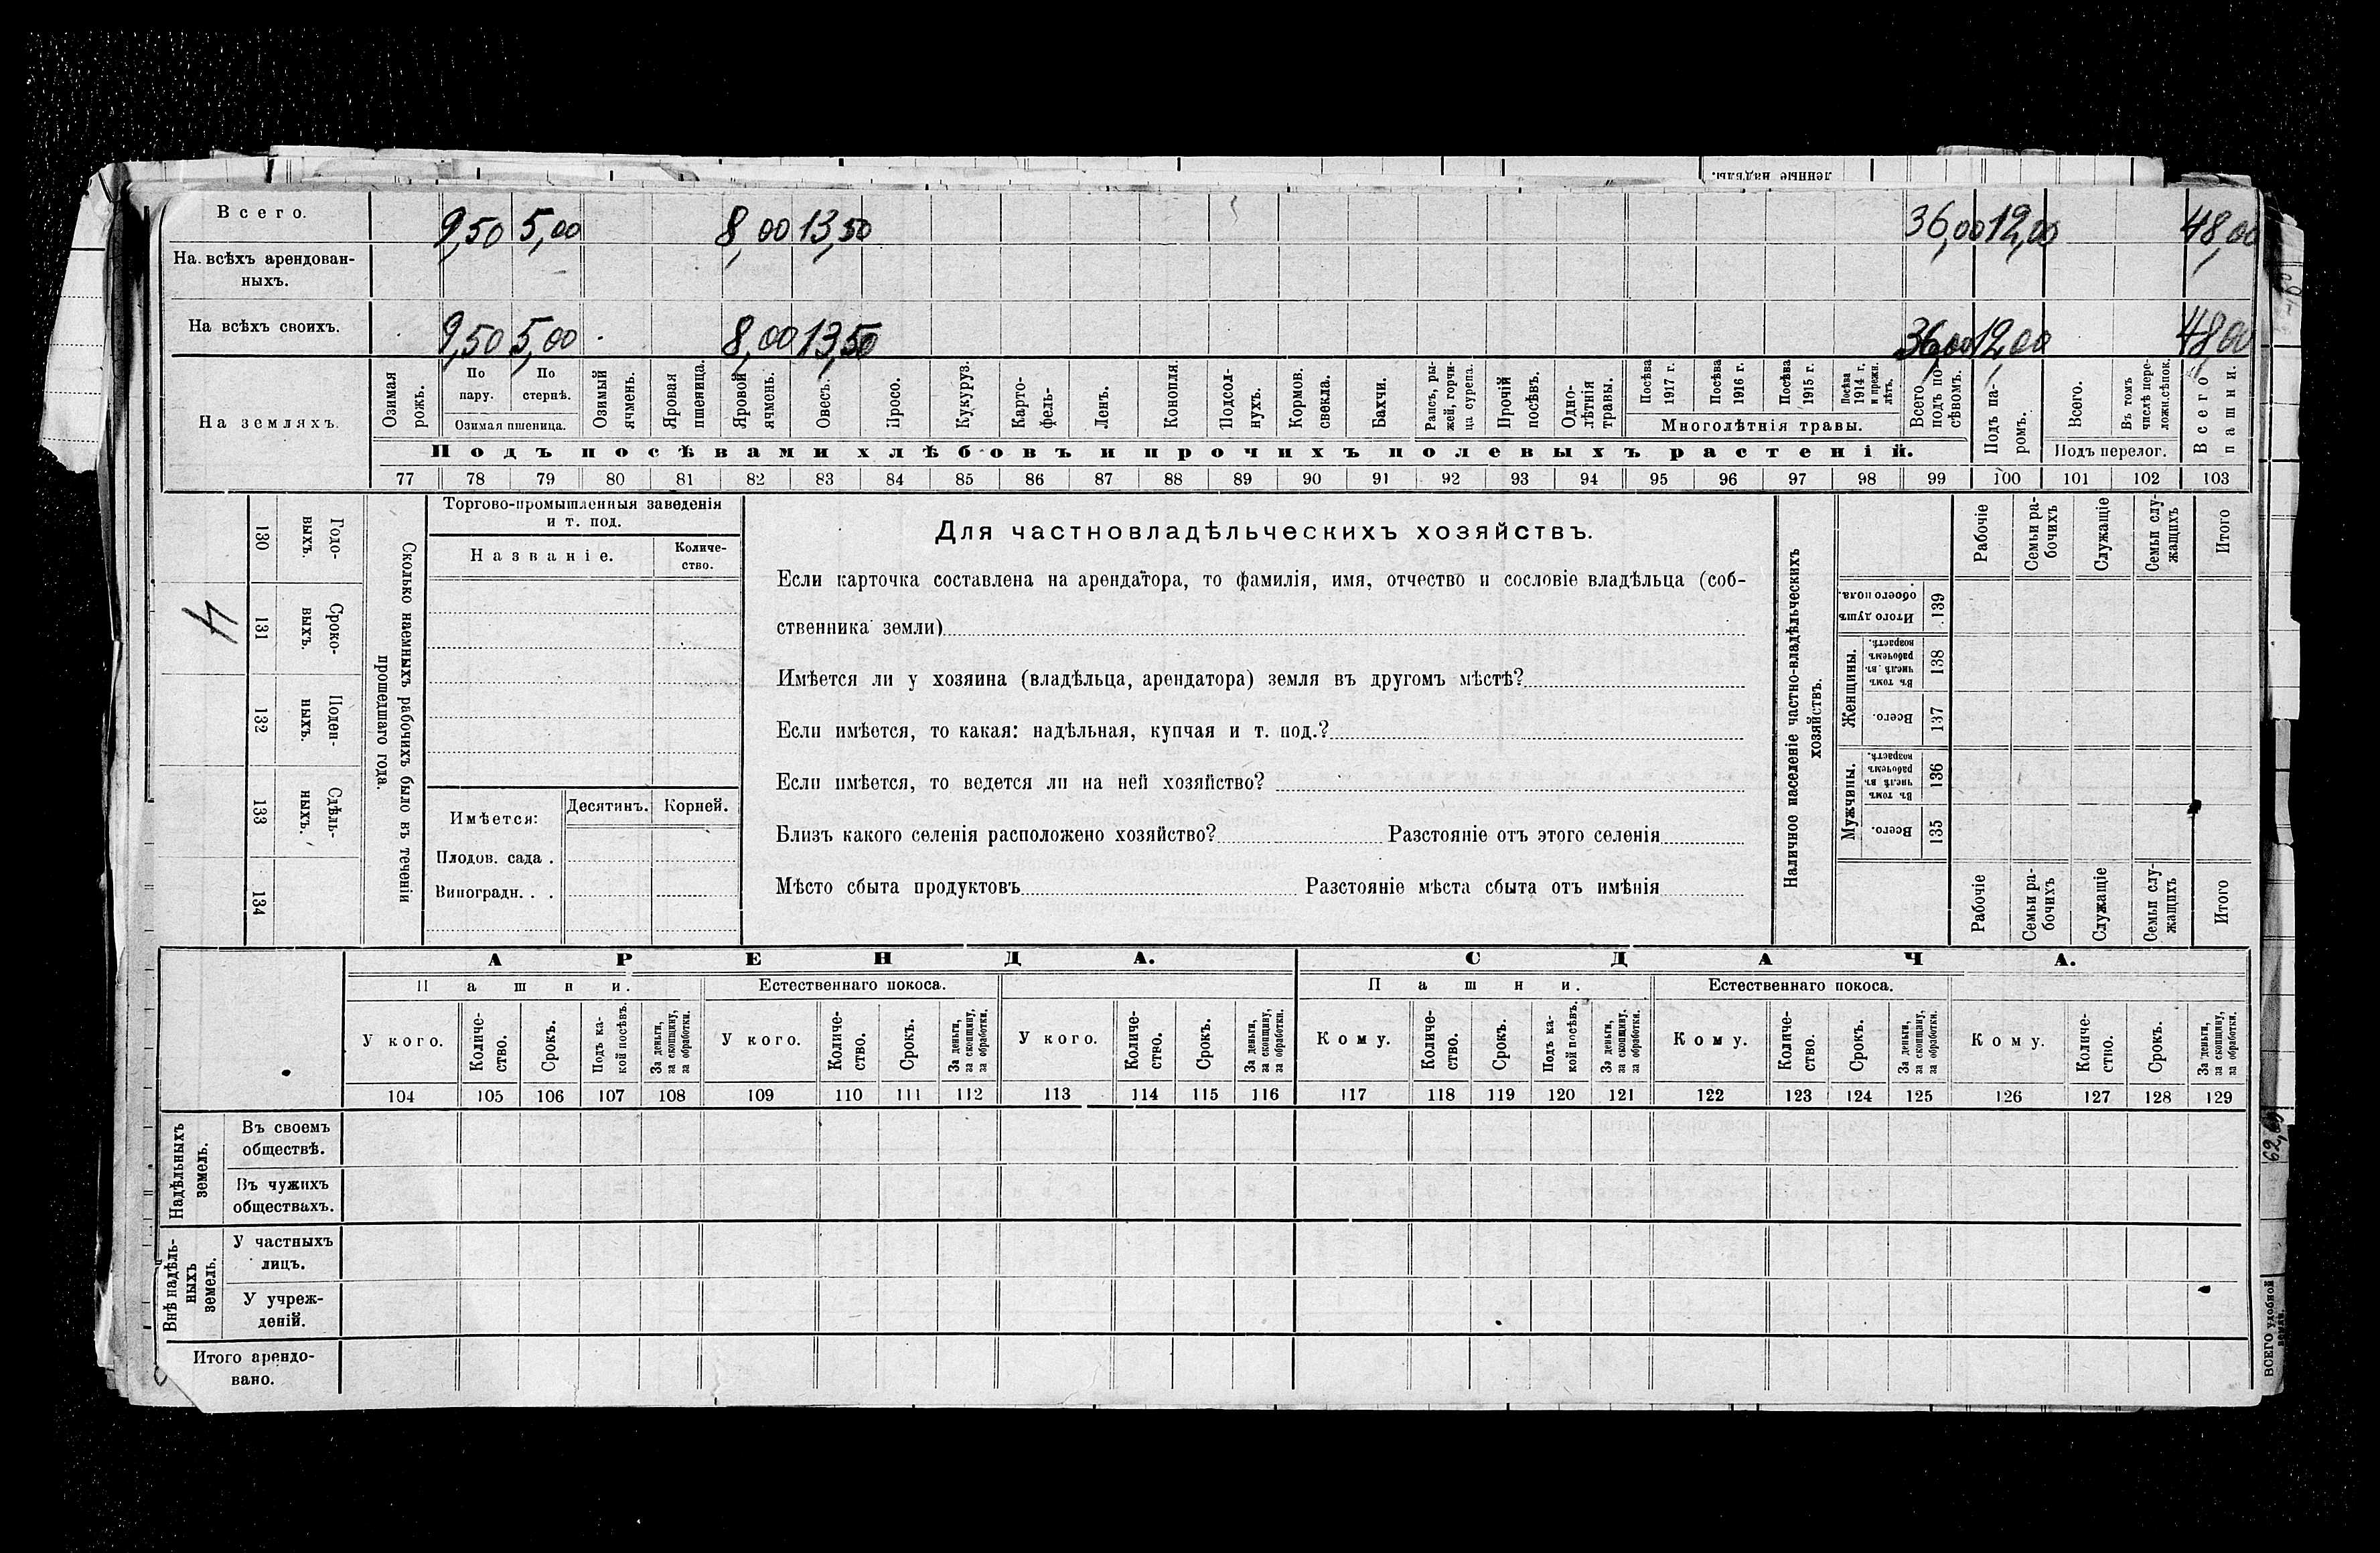 ленные надѣлы.
Всего. 9,50 5,00 8,00 13,50 36,00 12,00 48,00
На всѣхъ арендован-
ныхъ.
На всѣхъ своихъ. 9,50 5,00 8,00 13,50 36,00 12,00 48,00
На земляхъ.
Озимая рожь.
По пару.
По стернѣ.
Озимая пшеница.
Озимый ячмень.
Яровая пшеница.
Яровой ячмень.
Овесъ.
Просо.
Кукуруз.
Карто-
фель-
Ленъ.
Конопля
Подсол-
нухъ.
Кормов.
свекла.
Бахчи.
Рапсъ, ры-
жей, горчи-
ца, сурепа.
Прочій посѣвъ.
Одно-
лѣтнія
травы.
Посѣва 1917 г.
Посѣва 1916 г.
Посѣва 1915 г.
Посѣва 1914 г. и прежн. лѣтъ.
Многолѣтнія травы.
Всего подъ по-
сѣвомъ.
Подъ па-
ромъ.
Всего.
Въ томъ числѣ пере-
ложн. сѣнок.
Подъ перелог.
Всего пашни.
Подъ посѣвами хлѣбовъ и прочихъ полевыхъ растеній.
77 78 79 80 81 82 83 84 85 86 87 88 89 90 91 92 93 94 95 96 97 98 99 100 101 102 103
4
130 Годо-
выхъ.
131 Сроко-
выхъ.
132 Поден-
ныхъ.
133 Сдѣль-
ныхъ.
134
Сколько наемныхъ рабочихъ было въ теченіи
прошедшаго года.
Торгово-промышленныя заведенія
и т. под.
Названіе.
Количе-
ство.
Имѣется:
Десятинъ.
Корней.
Плодов. сада .
Виноградн. . .
Для частновладѣльческихъ хозяйствъ.
Если карточка составлена на арендатора, то фамилія, имя, отчество и сословіе владѣльца (соб-
ственника земли)
Имѣется ли у хозяина (владѣльца, арендатора) земля въ другомъ мѣстѣ?
Если имѣется, то какая: надѣльная, купчая и т. под.?
Если имѣется, то ведется ли на ней хозяйство?
Близъ какого селенія расположено хозяйство? Разстояніе отъ этого селенія
Мѣсто сбыта продуктовъ Разстояніе мѣста сбыта отъ имѣнія
Наличное населеніе частно-владѣльческихъ
хозяйствъ.
Рабочіе
Семьи ра-
бочихъ
Служащіе
Семьи слу-
жащихъ
Итого
Итого душъ обоего пола. 139
Женщины.
Въ томъ числѣ въ рабочемъ возрастѣ. 138
Всего. 137
Мужчины.
Въ томъ числѣ въ рабочемъ возрастѣ. 136
Всего. 135
Рабочіе
Семьи ра-
бочихъ
Служащіе
Семьи слу-
жащихъ
Итого
АРЕНДА. СДАЧА.
Пашни. Естественнаго покоса. Пашни. Естественнаго покоса.
У кого.
Количе-
ство.
Срокъ.
Подъ ка-
кой посѣвъ.
За деньги,
за скопщину,
за обработки.
У кого.
Количе-
ство.
Срокъ.
За деньги,
за скопщину,
за обработки.
У кого.
Количе-
ство.
Срокъ.
За деньги,
за скопщину,
за обработки.
Кому.
Количе-
ство.
Срокъ.
Подъ ка-
кой посѣвъ.
За деньги,
за скопщину,
за обработки.
Кому.
Количе-
ство.
Срокъ.
За деньги,
за скопщину,
за обработки.
Кому.
Количе-
ство.
Срокъ.
За деньги,
за скопщину,
за обработки.
104 105 106 107 108 109 110 111 112 113 114 115 116 117 118 119 120 121 122 123 124 125 126 127 128 129
Надѣльныхъ
земель.
Въ своемъ
обществѣ.
Въ чужихъ
обществахъ.
Внѣ надѣль-
ныхъ
земель.
У частныхъ
лицъ.
У учреж-
деній.
Итого арендо-
вано.
ВСЕГО удобной